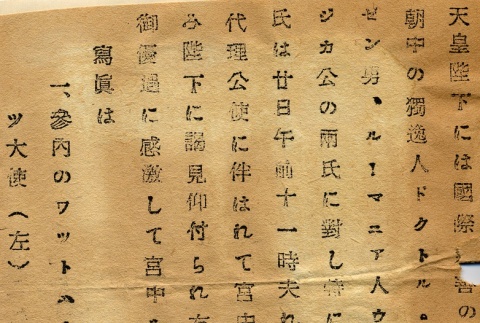 天皇陛下には國際親善の
朝中の獨逸人ドクトル・
ゼン男、ルーマニア人ウ
ジカ公の兩氏に對し特に
氏は廿日午前十一時夫れ
代理公使に伴はれて宮中
み陛下に謁見仰付られ右
御優遇に感激して宮中を
寫眞は
一、參內のワツト
ツ大使（左）